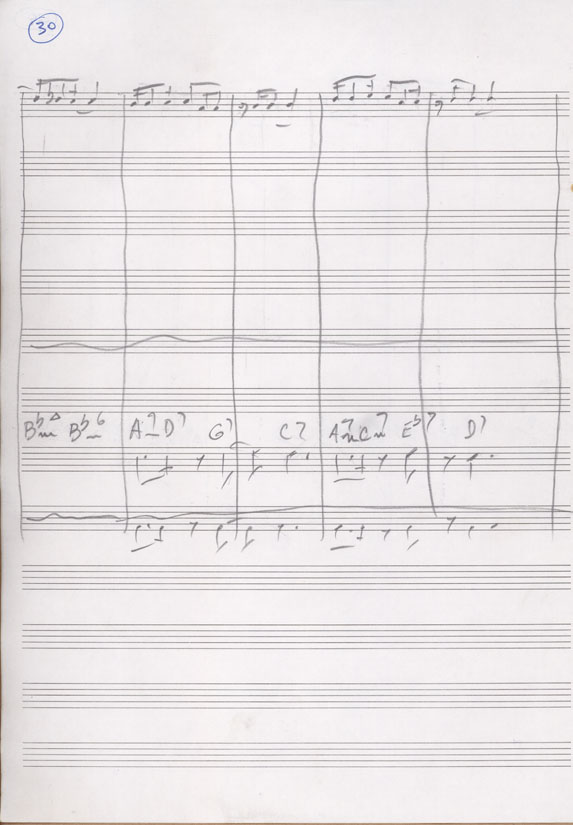 30
B♭m△ B♭m6 A-7 D7 G7 C7 Am7 Cm7 E♭7 D7